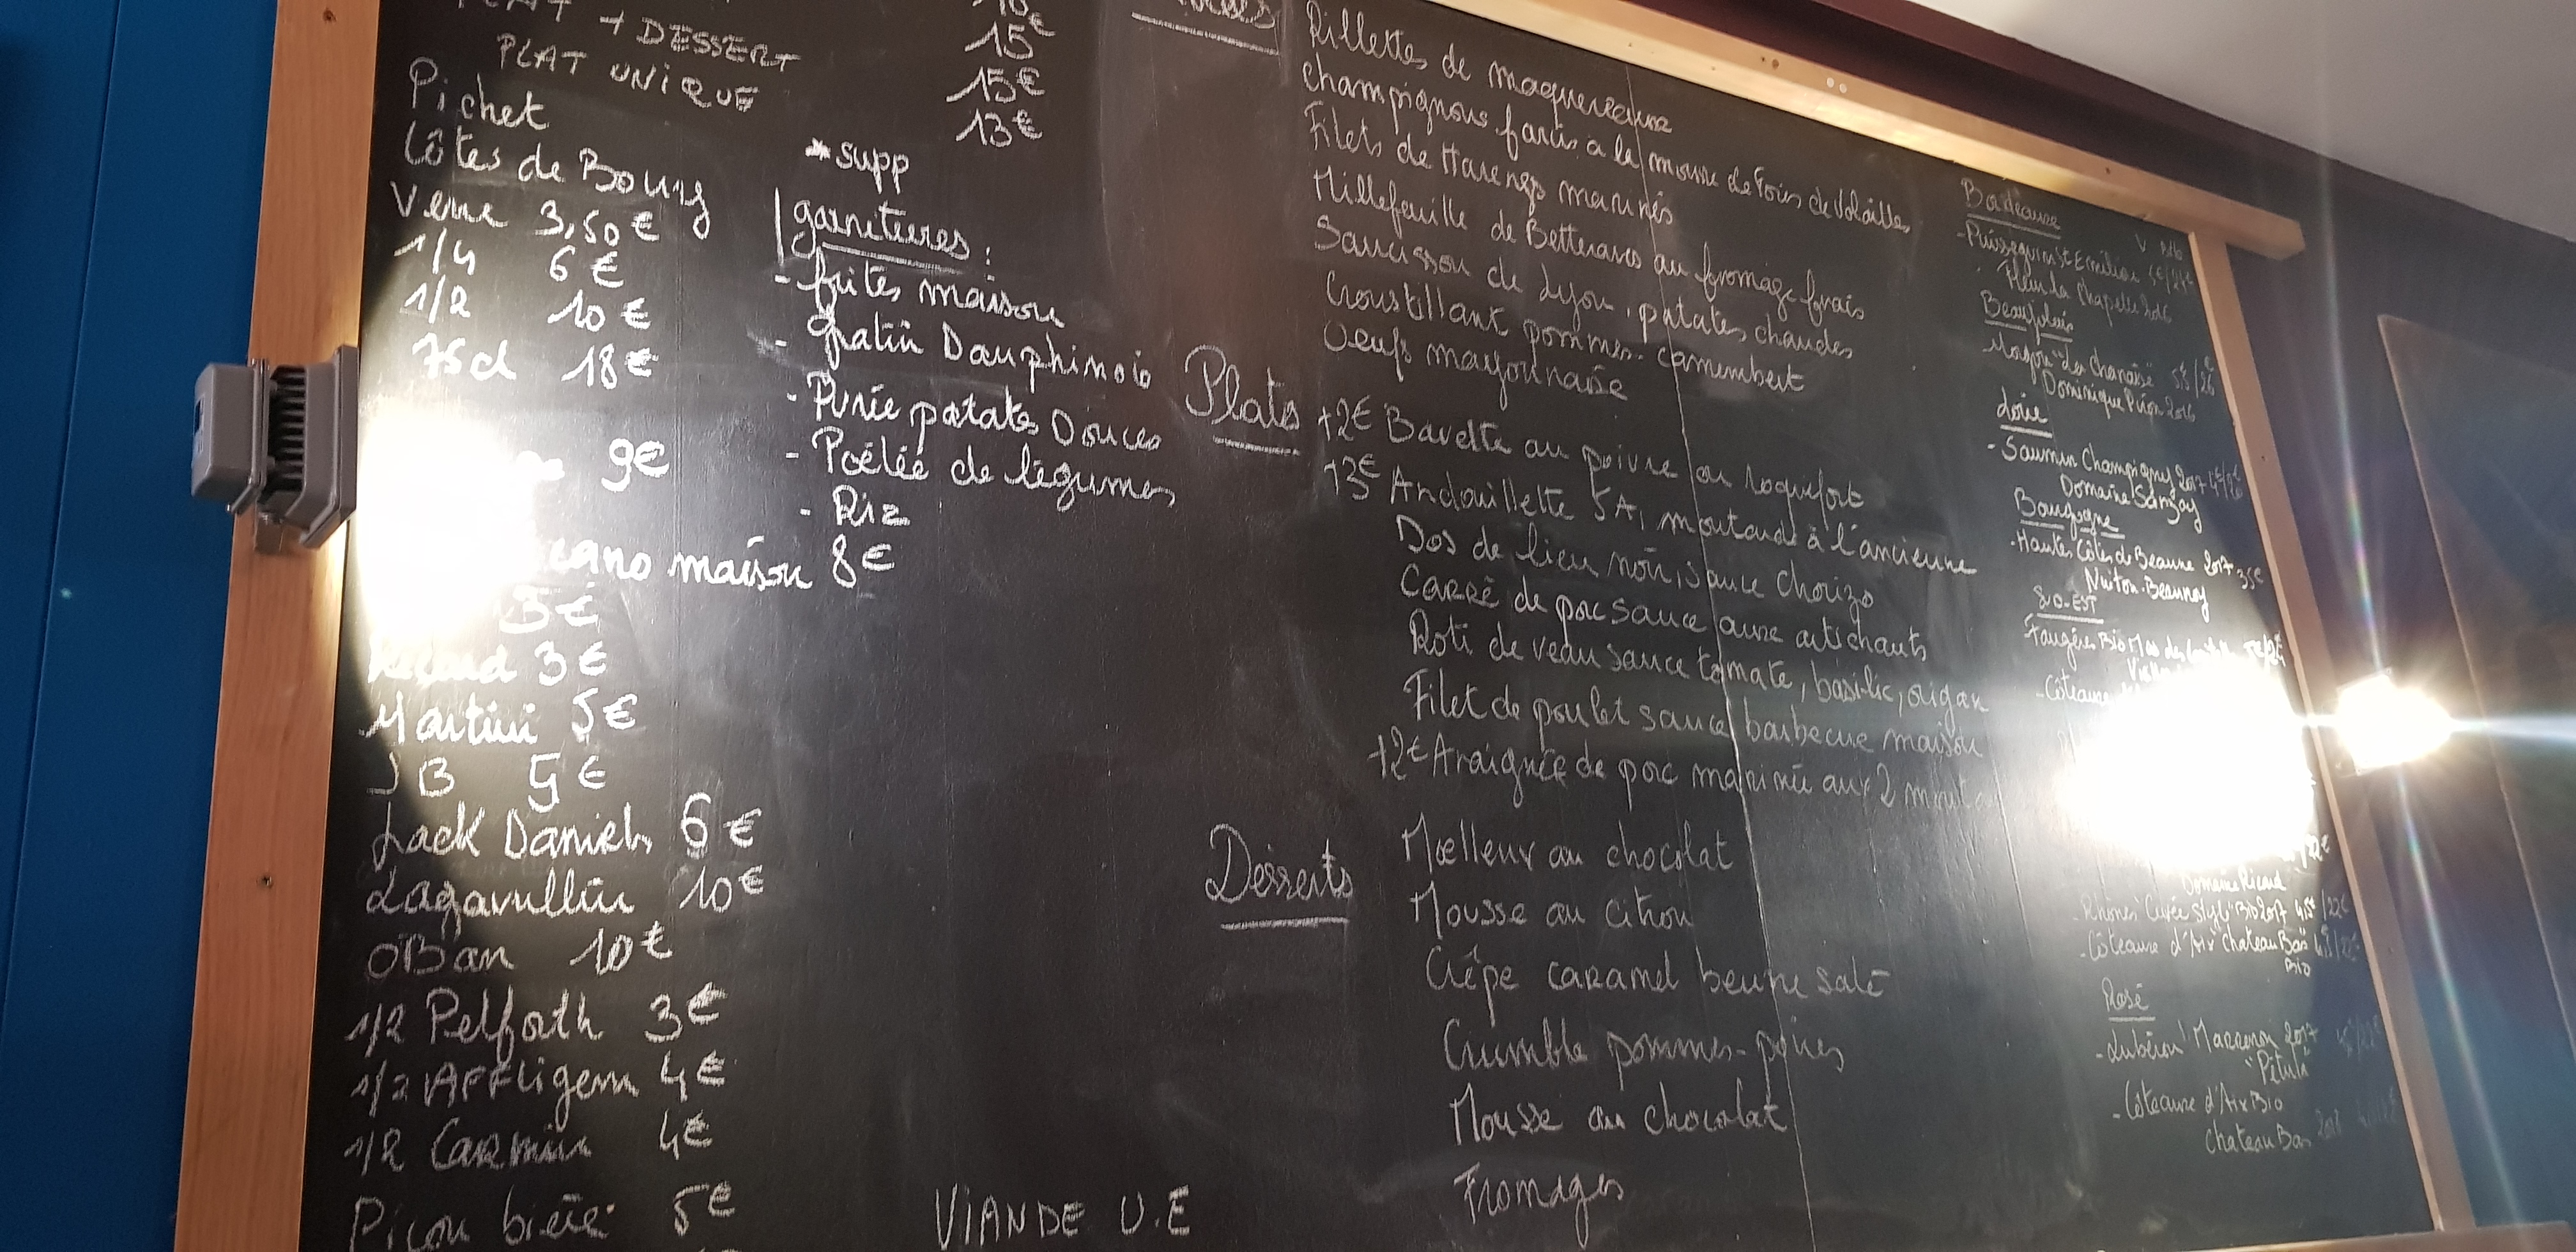 + DESSERT
PLAT UNIQUE
15€
15€
13€
Pichet
Côtes de Bourg
Verre 3,50€
1/4 6€
1/2 10€
75cl 18€
9€
maison 8€
3€
3€
Martini 5€
JB 5€
Jack Daniels 6€
Lagavullin 10€
OBan 10€
1/2 Pelforth 3€
1/2 AFFligem 4€
1/2 Carmin 4€
Picon bière 5€
*supp
garnitures :
- frites maison
- Gratin Dauphinois
- Purée patates Douces
- Poêlée de légumes
- Riz
VIANDE U.E
Rillettes de maquereaux
Champignons farcis à la mousse de Foies de Volailles
Filets de Harengs marinés
Millefeuille de Betteraves au fromage frais
Saucisson de Lyon, patates chaudes
Croustillant pommes-camembert
Oeufs mayonnaise
Plats
+2€ Bavette au poivre ou roquefort
+3€ Andouillette 5A, moutarde à l'ancienne
Dos de lieu noir, sauce chorizo
CARRé de porc sauce aux artichauts
Roti de veau sauce tomate, basilic, origan
Filet de poulet sauce barbecue maison
+2€ Araignée de porc marinée aux 2 mout
Desserts
Moelleux au chocolat
Mousse au citron
Crêpe caramel beurre salé
Crumble pommes-poires
Mousse au chocolat
Fromages
Bordeaux
- Puisseguin St Emilion
Beaujolais
Dominique Piron 2016
Loire
- Saumur Champigny 2017
Domaine Sanzay
Bourgogne
- Hautes Côtes de Beaune 2017 35€
Nuiton-Beaunoy
SUD-EST
Faugères Bio Mas des
- Côteaux
Domaine Ricard
- Côteaux d'Aix "Chateau Bas"
Bio
Rosé
- Lubéron Marrenon 2017
"Pétula"
- Côteaux d'Aix Bio
Chateau Bas